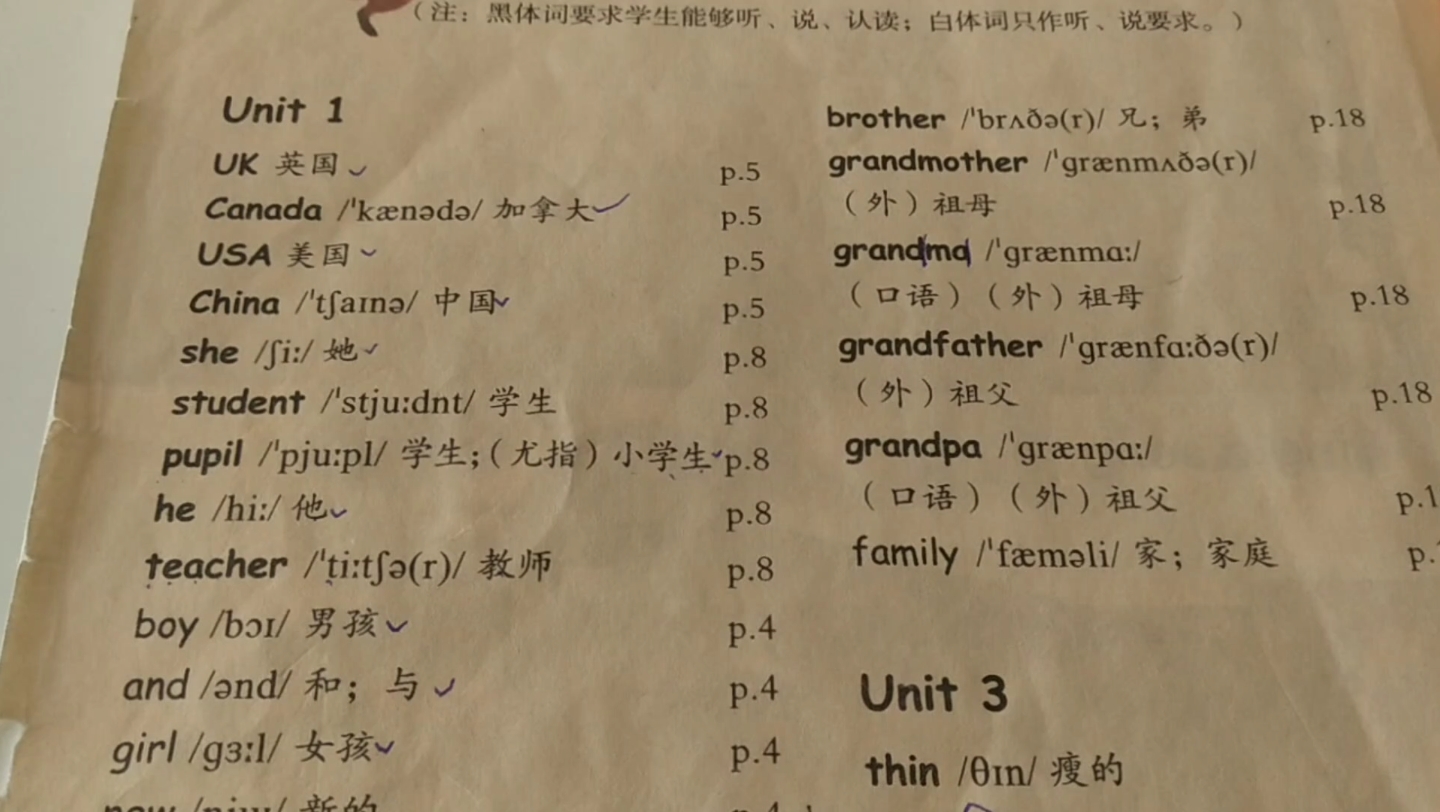 （注：黑体词要求学生能够听、说、认读；白体词只作听、说要求。）
Unit 1
UK 英国 p.5
Canada /ˈkænədə/ 加拿大 p.5
USA 美国 p.5
China /ˈtʃaɪnə/ 中国 p.5
she /ʃiː/ 她 p.8
student /ˈstjuːdnt/ 学生 p.8
pupil /ˈpjuːpl/ 学生；（尤指）小学生 p.8
he /hiː/ 他 p.8
teacher /ˈtiːtʃə(r)/ 教师 p.8
boy /bɔɪ/ 男孩 p.4
and /ənd/ 和；与 p.4
girl /ɡɜːl/ 女孩 p.4
new /njuː/ 新的 p.4
brother /ˈbrʌðə(r)/ 兄；弟 p.18
grandmother /ˈɡrænmʌðə(r)/
（外）祖母 p.18
grandma /ˈɡrænmɑː/
（口语）（外）祖母 p.18
grandfather /ˈɡrænfɑːðə(r)/
（外）祖父 p.18
grandpa /ˈɡrænpɑː/
（口语）（外）祖父 p.1
family /ˈfæməli/ 家；家庭 p.
Unit 3
thin /θɪn/ 瘦的